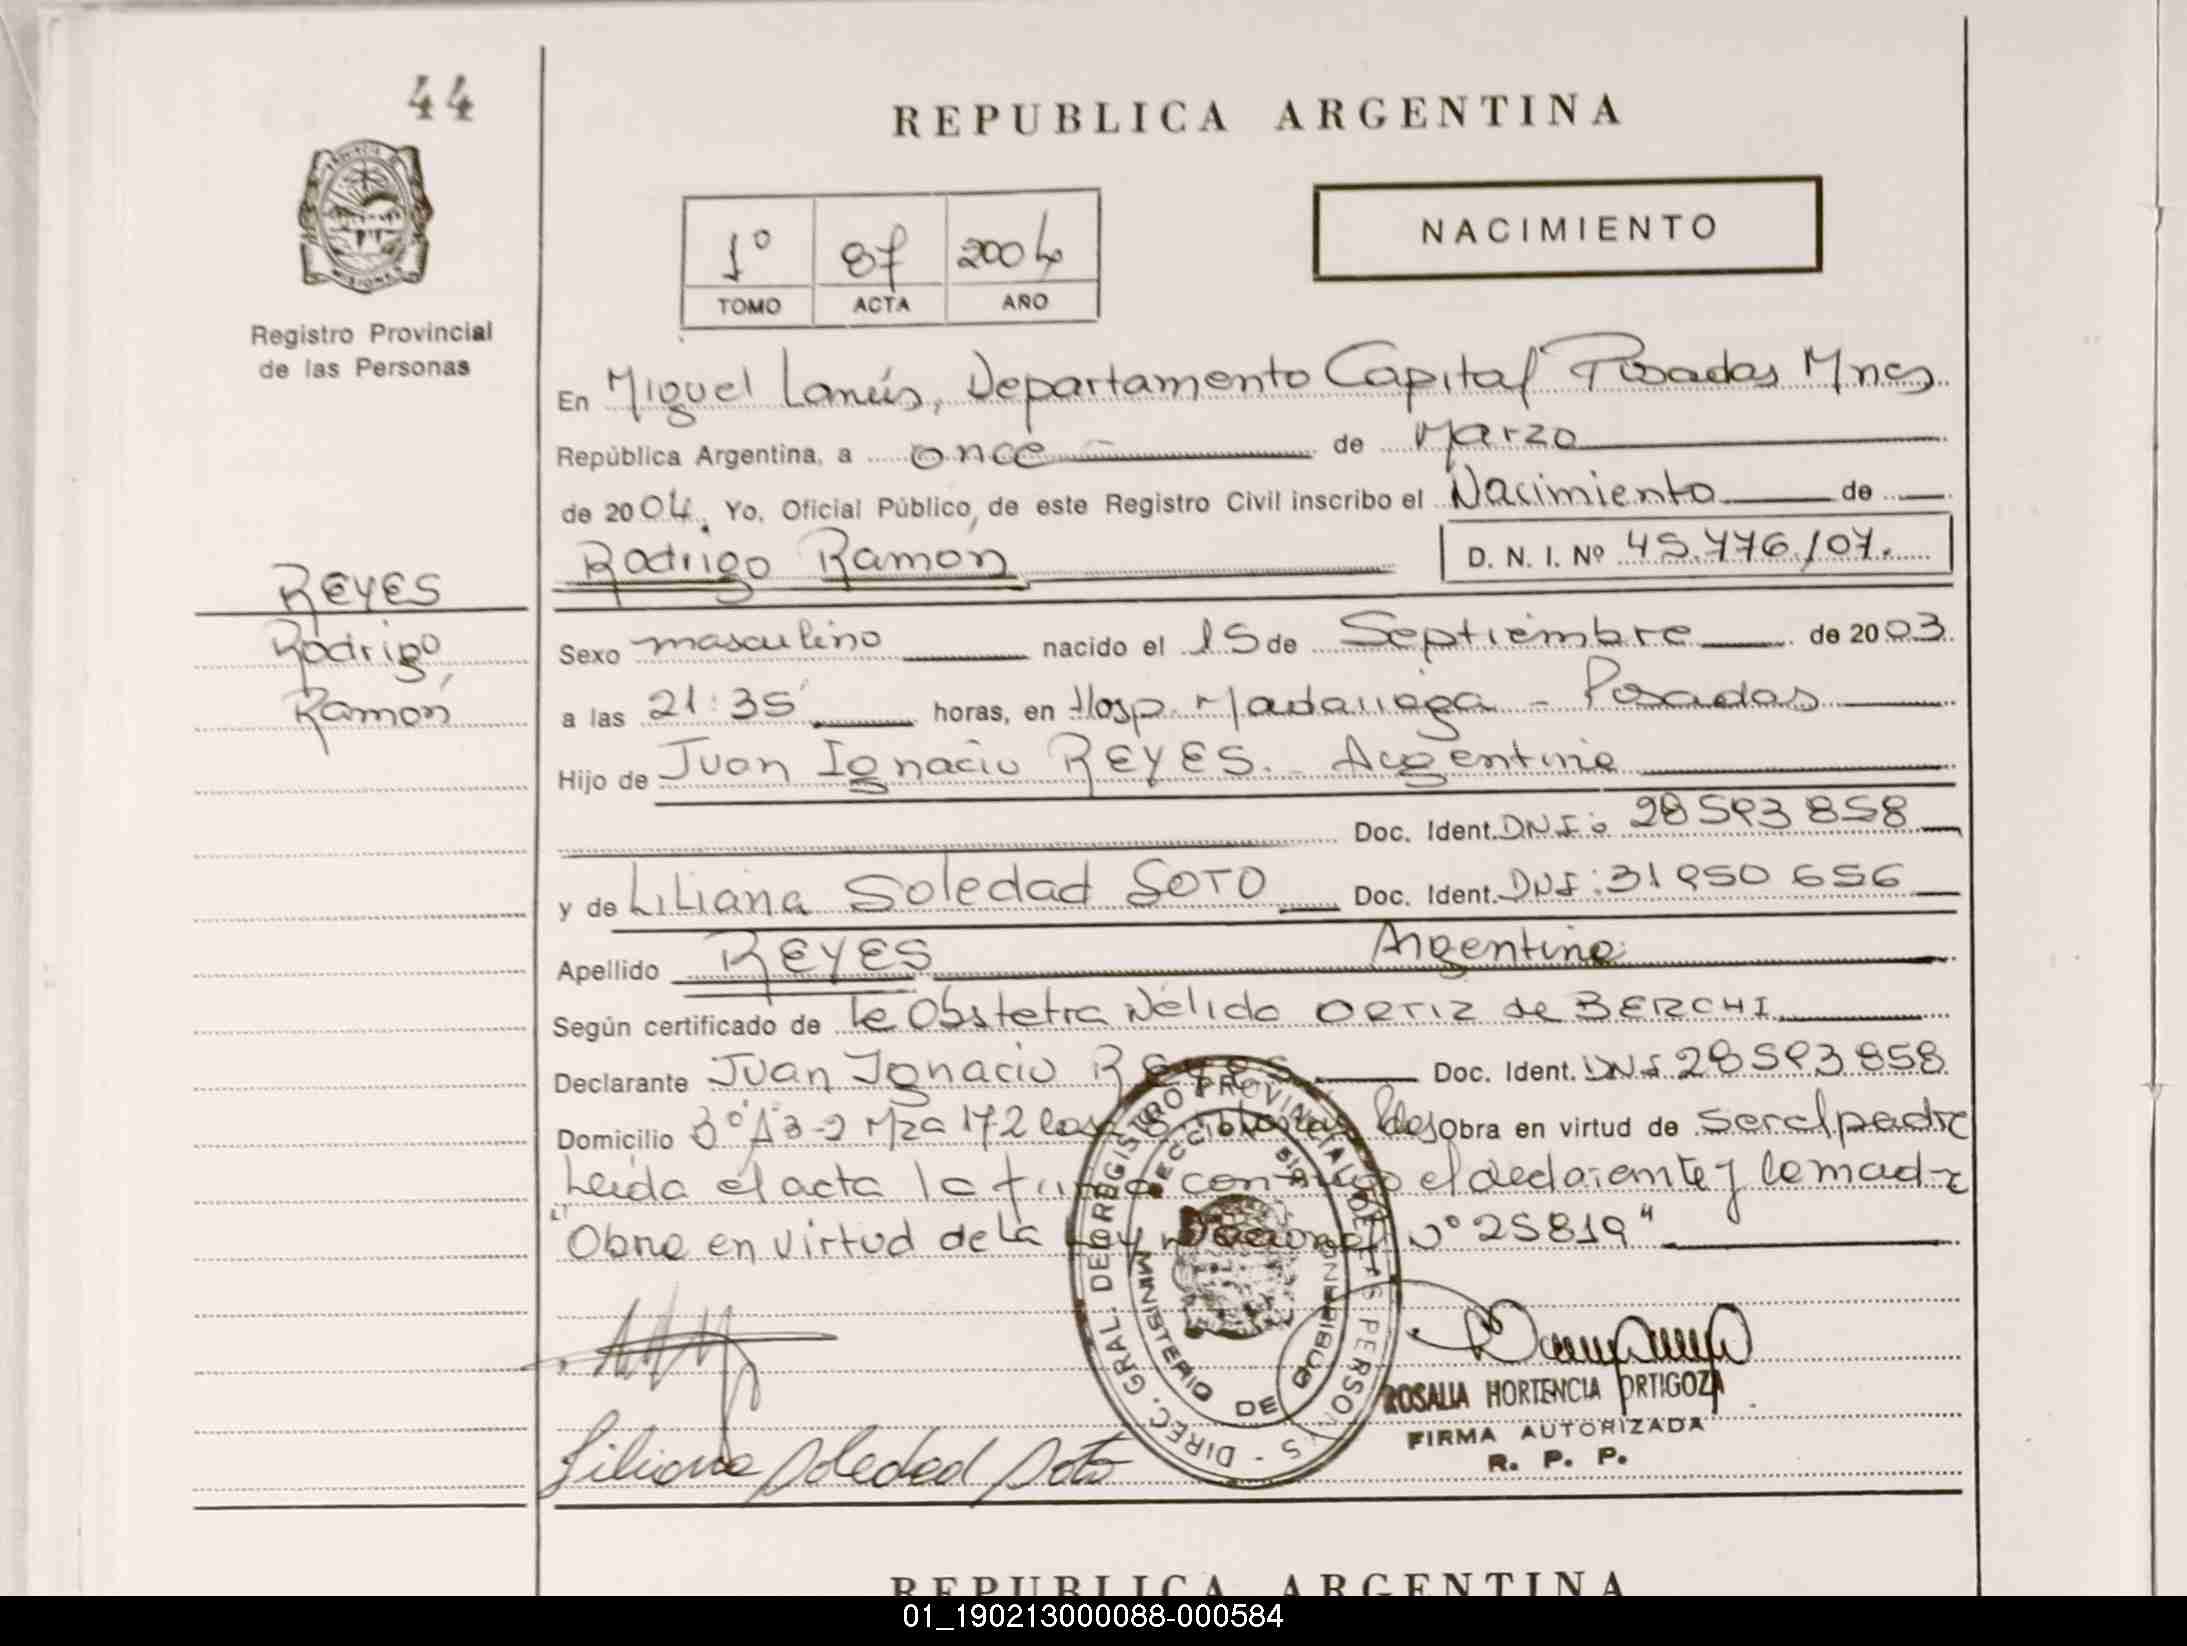 44
REPUBLICA ARGENTINA
NACIMIENTO
1º 87 2004
TOMO ACTA AÑO
Registro Provincial
de las Personas
En Miguel Lanús, Departamento Capital Posadas Mnes
República Argentina, a once de Marzo
de 2004. Yo, Oficial Público, de este Registro Civil inscribo el Nacimiento de
Rodrigo Ramón D. N. I. Nº 45.776.107.
REYES
Rodrigo
Ramón
Sexo masculino nacido el 15 de Septiembre de 2003
a las 21:35 horas, en Hosp. Madariaga - Posadas
Hijo de Juan Ignacio REYES. - Argentina
Doc. Ident. DNI: 28593858
y de Liliana Soledad SOTO Doc. Ident. DNI: 31950656
Apellido REYES Argentina
Según certificado de la Obstetra Nélida ORTIZ de BERCHI
Declarante Juan Ignacio REYES Doc. Ident. DNI 28593858
Domicilio Mza 172 Obra en virtud de ser el padre
Leída el acta la firma conmigo el declarante y la madre
"Obra en virtud de la Ley Nacional Nº 25819"
DIREC. GRAL. DEL REGISTRO PROVINCIAL DE LAS PERSONAS
MINISTERIO DE GOBIERNO
ROSALIA HORTENCIA ORTIGOZA
FIRMA AUTORIZADA
R. P. P.
Liliana Soledad Soto
REPUBLICA ARGENTINA
01_190213000088-000584